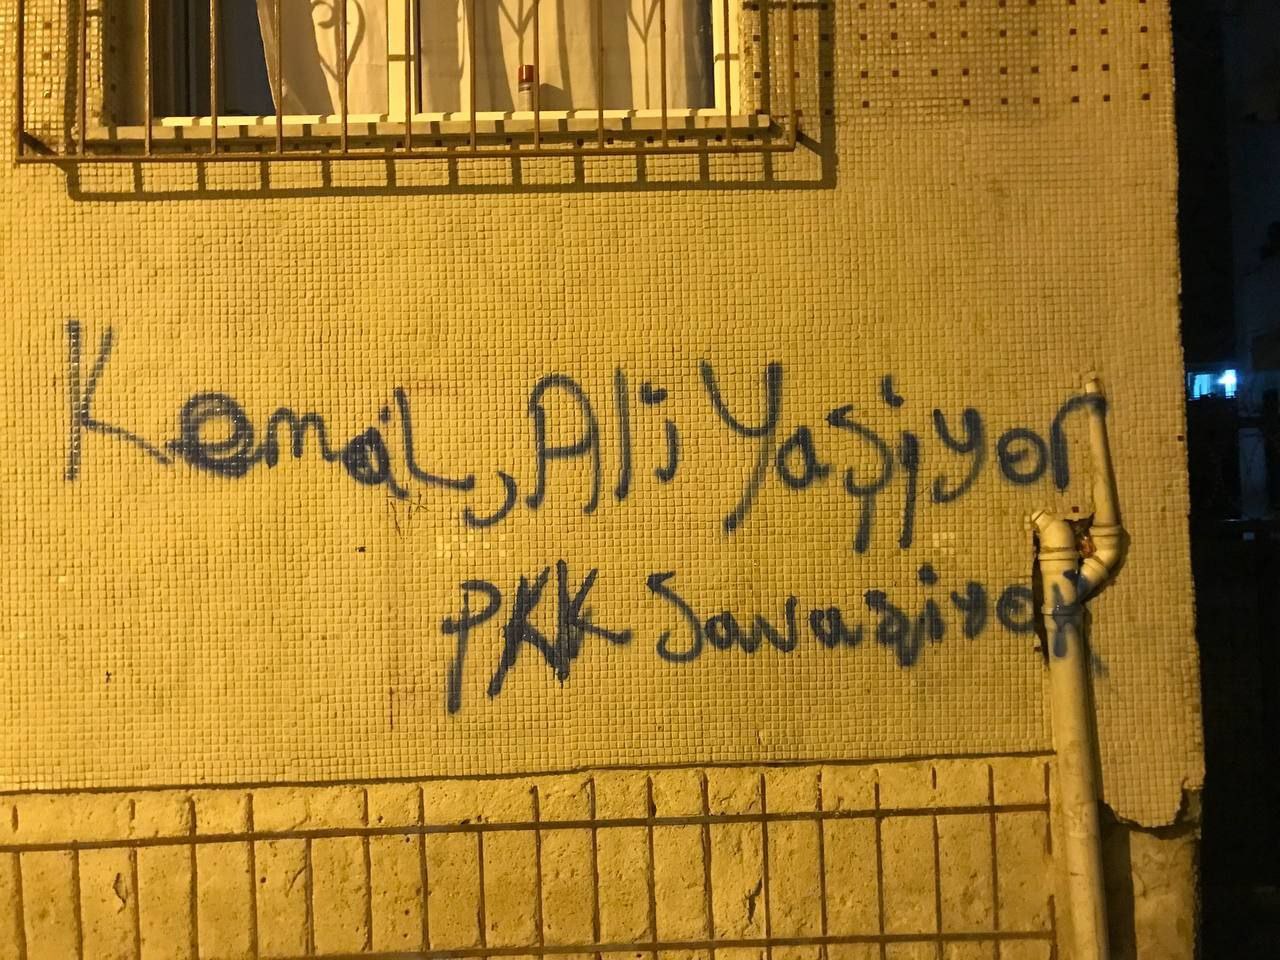 Kemal, Ali Yaşiyor
PKK Savaşiyor